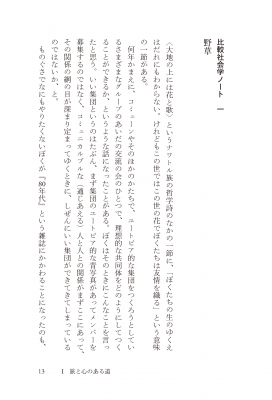 比較社会学ノート 一
野草
〈大地の上には花と歌〉というナワトル族の哲学詩のなかの一節に、「ぼくたちの生のゆくえ
はだれにもわからない、けれどもこの世ではこの世の花でぼくたちは友情を織る」という意味
の一節がある。
何年かまえに、コミューンやそのほかのかたちで、ユートピア的な集団をつくろうとしてい
るさまざまなグループのあいだの交流の会のひとつで、理想的な共同体をどのようにしてつく
ることができるか、というような話になったことがある。ぼくはそのときにこんなことを言っ
たと思う。いい集団というのはたぶん、まず集団のユートピア的な青写真があってメンバーを
募集するのではなく、コミュニカルブルな(通じあえる)人と人との関係がまずここにあって、
その関係の網の目が深まり定まってゆくときに、しぜんにいい集団ができてきてしまうも
のではないか、と。
ものぐさでなにもやりたくないぼくが『80年代』という雑誌にかかわることになったのも、
13 Ⅰ 旅と心のある道